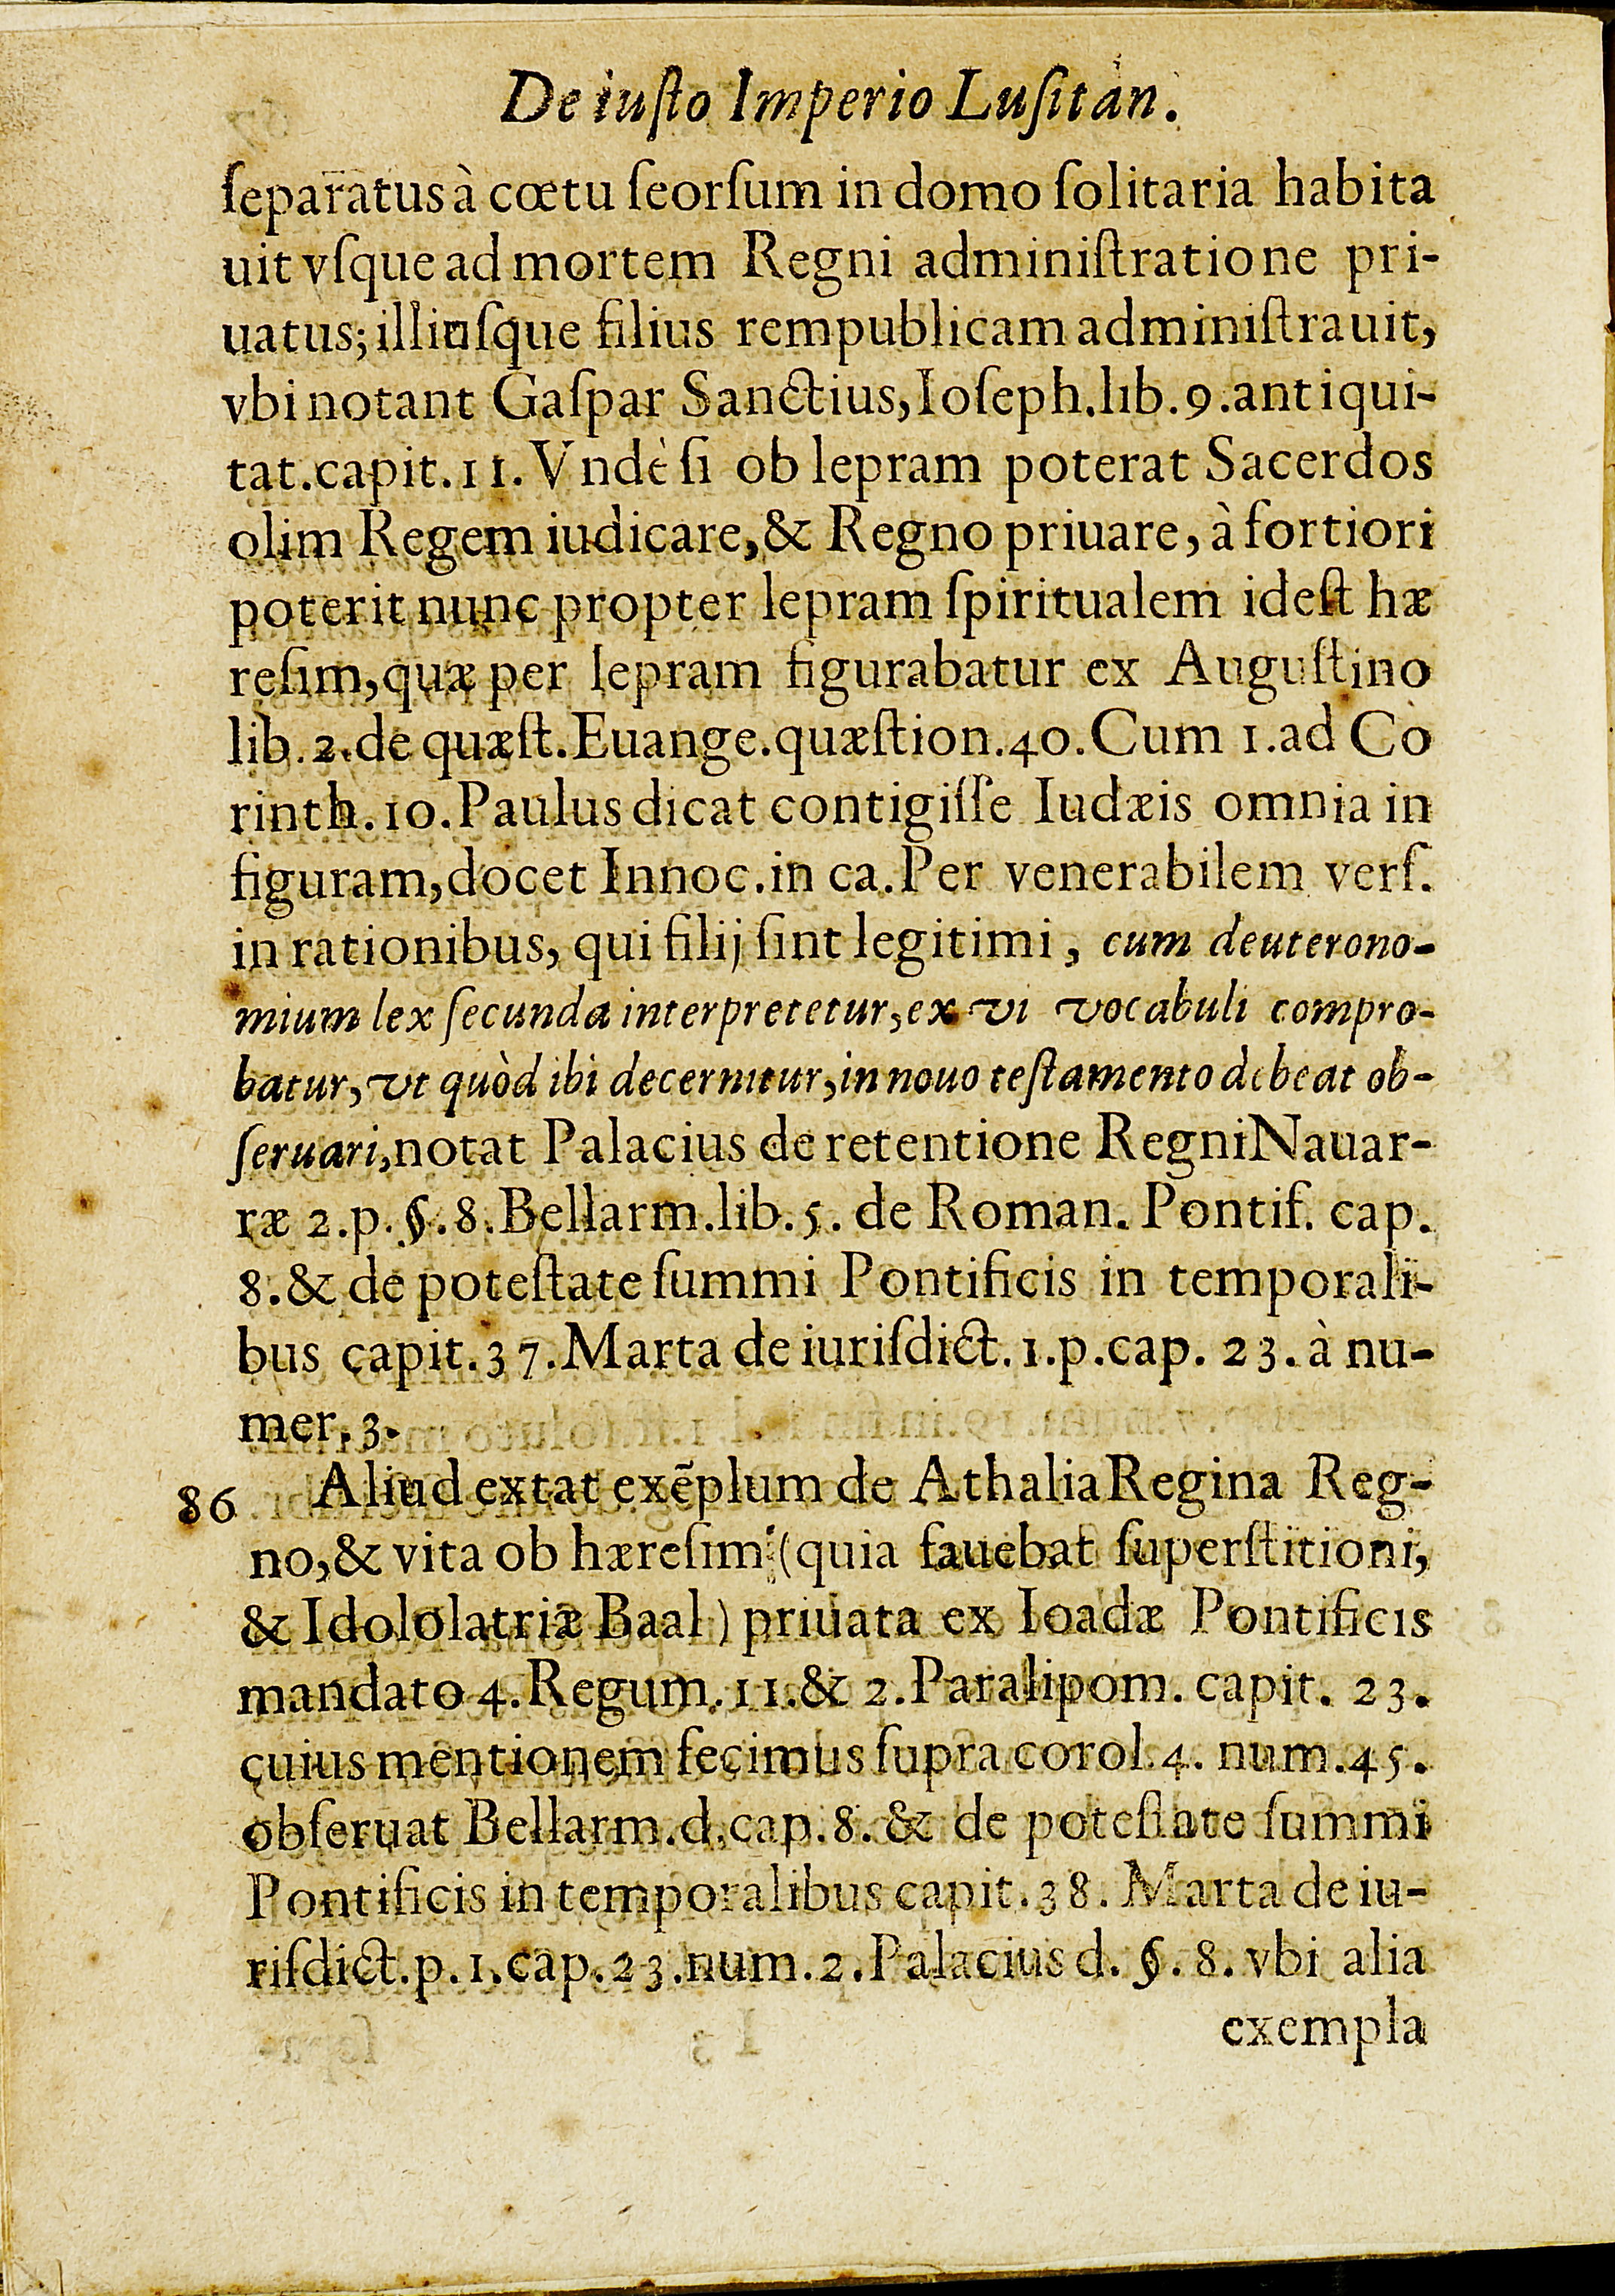 De iuſto Imperio Luſitan.
ſeparatus à cœtu ſeorſum in domo ſolitaria habita
uit vſque ad mortem Regni adminiſtratione pri-
uatus; illiuſque filius rempublicam adminiſtrauit,
vbi notant Gaſpar Sanctius, Ioſeph. lib. 9. antiqui-
tat. capit. 11. Vndè ſi ob lepram poterat Sacerdos
olim Regem iudicare, & Regno priuare, à fortiori
poterit nunc propter lepram ſpiritualem ideſt hæ
reſim, quæ per lepram figurabatur ex Auguſtino
lib. 2. de quæſt. Euange. quæſtion. 40. Cum 1. ad Co
rinth. 10. Paulus dicat contigiſſe Iudæis omnia in
figuram, docet Innoc. in ca. Per venerabilem verſ.
in rationibus, qui filij ſint legitimi, cum deuterono-
mium lex ſecunda interpretetur, ex vi vocabuli compro-
batur, vt quòd ibi decernitur, in nouo teſtamento debeat ob-
ſeruari, notat Palacius de retentione Regni Nauar-
ræ 2. p. §. 8. Bellarm. lib. 5. de Roman. Pontif. cap.
8. & de poteſtate ſummi Pontificis in temporali-
bus capit. 37. Marta de iuriſdict. 1. p. cap. 23. à nu-
mer. 3.
86 Aliud extat exēplum de Athalia Regina Reg-
no, & vita ob hæreſim (quia fauebat ſuperſtitioni,
& Idololatriæ Baal) priuata ex Ioadæ Pontificis
mandato 4. Regum. 11. & 2. Paralipom. capit. 23.
cuius mentionem fecimus ſupra corol. 4. num. 45.
obſeruat Bellarm. d. cap. 8. & de poteſtate ſummi
Pontificis in temporalibus capit. 38. Marta de iu-
riſdict. p. 1. cap. 23. num. 2. Palacius d. §. 8. vbi alia
exempla